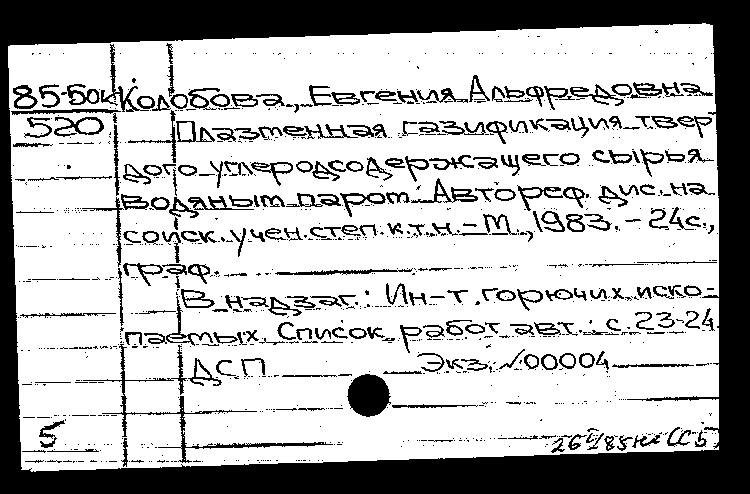 85-50к Колобова, Евгения Альфредовна
520 Плазменная газификация твер
дого углеродсодержащего сырья
водяным паром: Автореф. дис. на
соиск. учен. степ. к.т.н. - М., 1983. - 24с.,
граф.
В надзаг.: Ин-т горючих иско-
паемых. Список работ авт.: с. 23-24
ДСП Экз. №00004
5